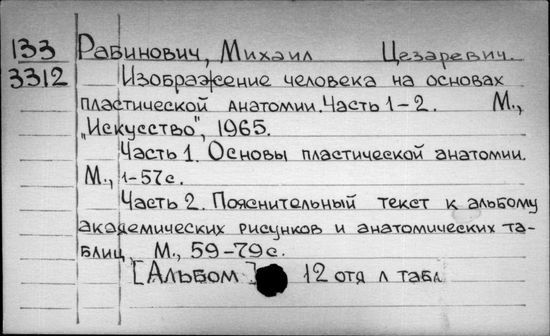 133 Рабинович, Михаил Цезаревич.
3312 Изображение человека на основах
пластической анатомии. Часть 1-2. М.,
„Искусство", 1965.
Часть 1. Основы пластической анатомии.
М., 1-57с.
Часть 2. Пояснительный текст к альбому
академических рисунков и анатомических та-
блиц, М., 59-79с.
[Альбом] 12 отд л табл